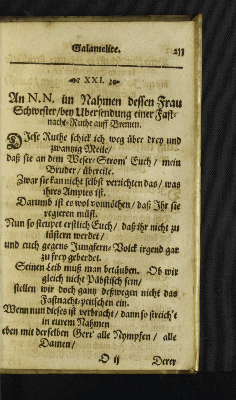 Galamelite. 211
XXI.
An N.N. im Nahmen dessen Frau
Schwester/bey Ubersendung einer Fast-
nacht-Ruthe auff Bremen.
DIese Ruthe schick ich weg über drey und
zwantzig Meile/
daß sie an dem Weser-Strom' Euch/ mein
Bruder/ übereile.
Zwar sie kan nicht selbst verrichten das/ was
ihres Amptes ist.
Darumb ist es wol vonnöthen/ daß Ihr sie
regieren müst.
Nun so steupet erstlich Euch/ daß ihr nicht zu
lüstern werdet/
und euch gegens Jungfern-Volck irgend gar
zu frey geberdet.
Seinen Leib muß man betäuben. Ob wir
gleich nicht Päbstisch sein/
stellen wir doch gantz deßwegen nicht das
Fastnacht-peitschen ein.
Wenn nun dieses ist verbracht/ dann so streich't
in eurem Nahmen
eben mit derselben Gert' alle Nympfen/ alle
Damen/
O ij Derer